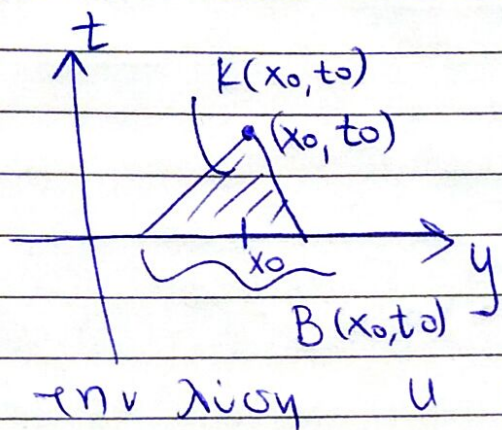 t
K(x₀,t₀)
(x₀,t₀)
x₀
y
B(x₀,t₀)
την λύση u